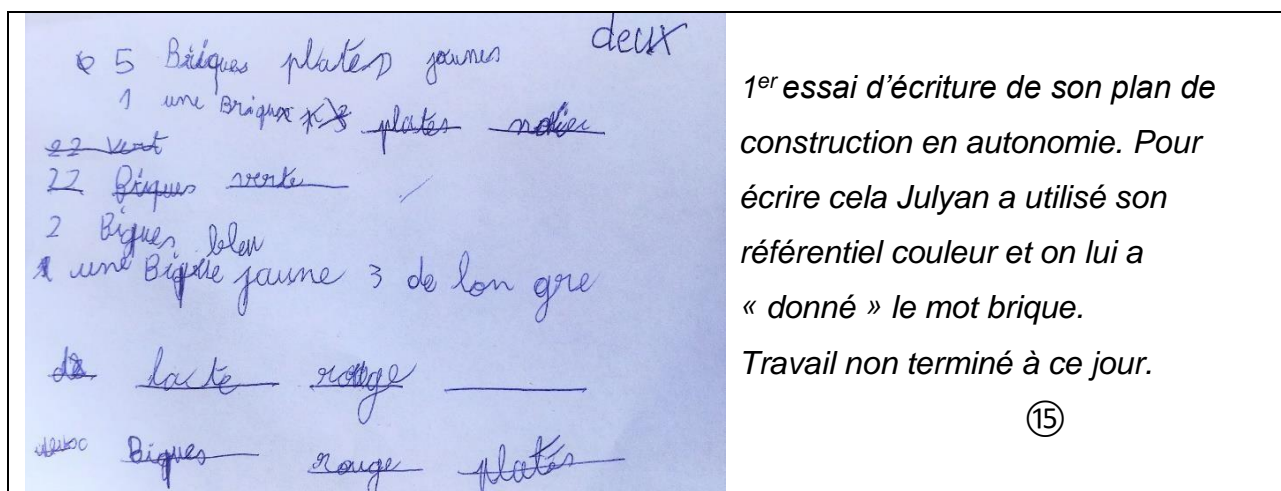 deux
5 Briques plates jaunes
1 une Brique plates
22 vert
22 Briques verte
2 Biques bleu
1 une Biqueie jaune 3 de lon gre
de lacte rouge
deux Biques rouge plates
1er essai d'écriture de son plan de
construction en autonomie. Pour
écrire cela Julyan a utilisé son
référentiel couleur et on lui a
« donné » le mot brique.
Travail non terminé à ce jour.
⑮